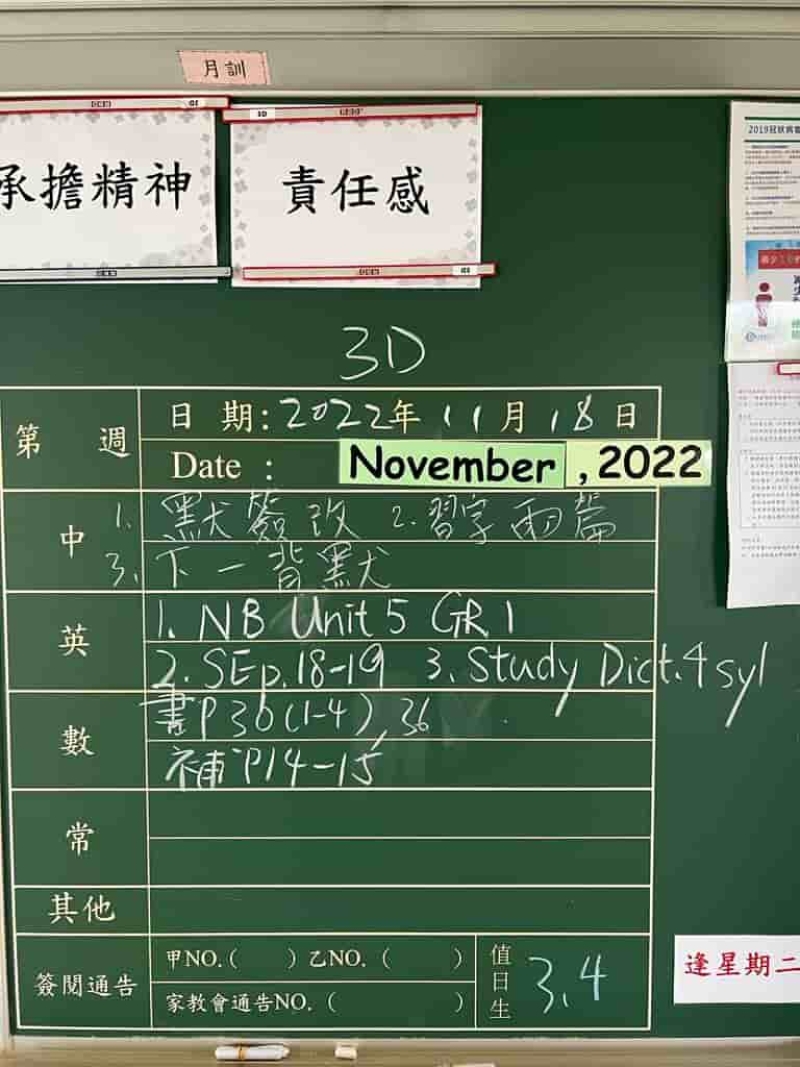 月訓
承擔精神
責任感
2019冠狀病
3D
第 週
日 期:2022年 11月 18日
Date : November , 2022
中
1. 默簽改 2. 習字兩篇
3. 下一背默
英
1. NB Unit 5 GR 1
2. SEp.18-19 3. Study Dict.4 syl
數
書P36(1-4), 36
補 P14-15
常
其他
簽閱通告
甲NO.( ) 乙NO. ( )
家教會通告NO. ( )
值日生
3、4
逢星期二